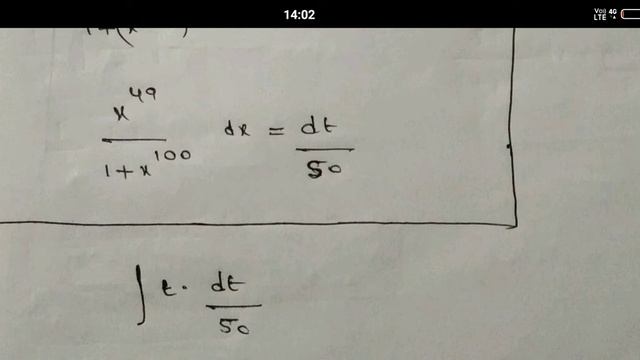 14:02
Vo))
LTE 4G
x^49 / 1+x^100 dx = dt / 50
∫ t. dt / 50